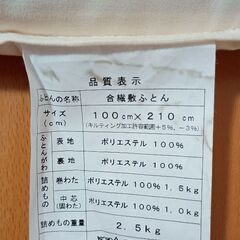 品質表示
ふとんの名称 合繊敷ふとん
サイズ(cm) 100cm×210cm
(キルティング加工許容範囲+5%、-3%)
ふとんがわ 表地 ポリエステル 100%
裏地 ポリエステル 100%
詰めもの 巻わた ポリエステル 100% 1.5kg
中芯(固わた) ポリエステル 100% 1.0kg
詰めもの重量 2.5kg